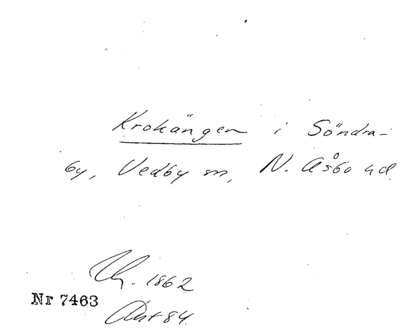 Krokängen i Söndra-
by, Vedby sn, N. Åsbo hd
1862
Nr 7463
Akt 84